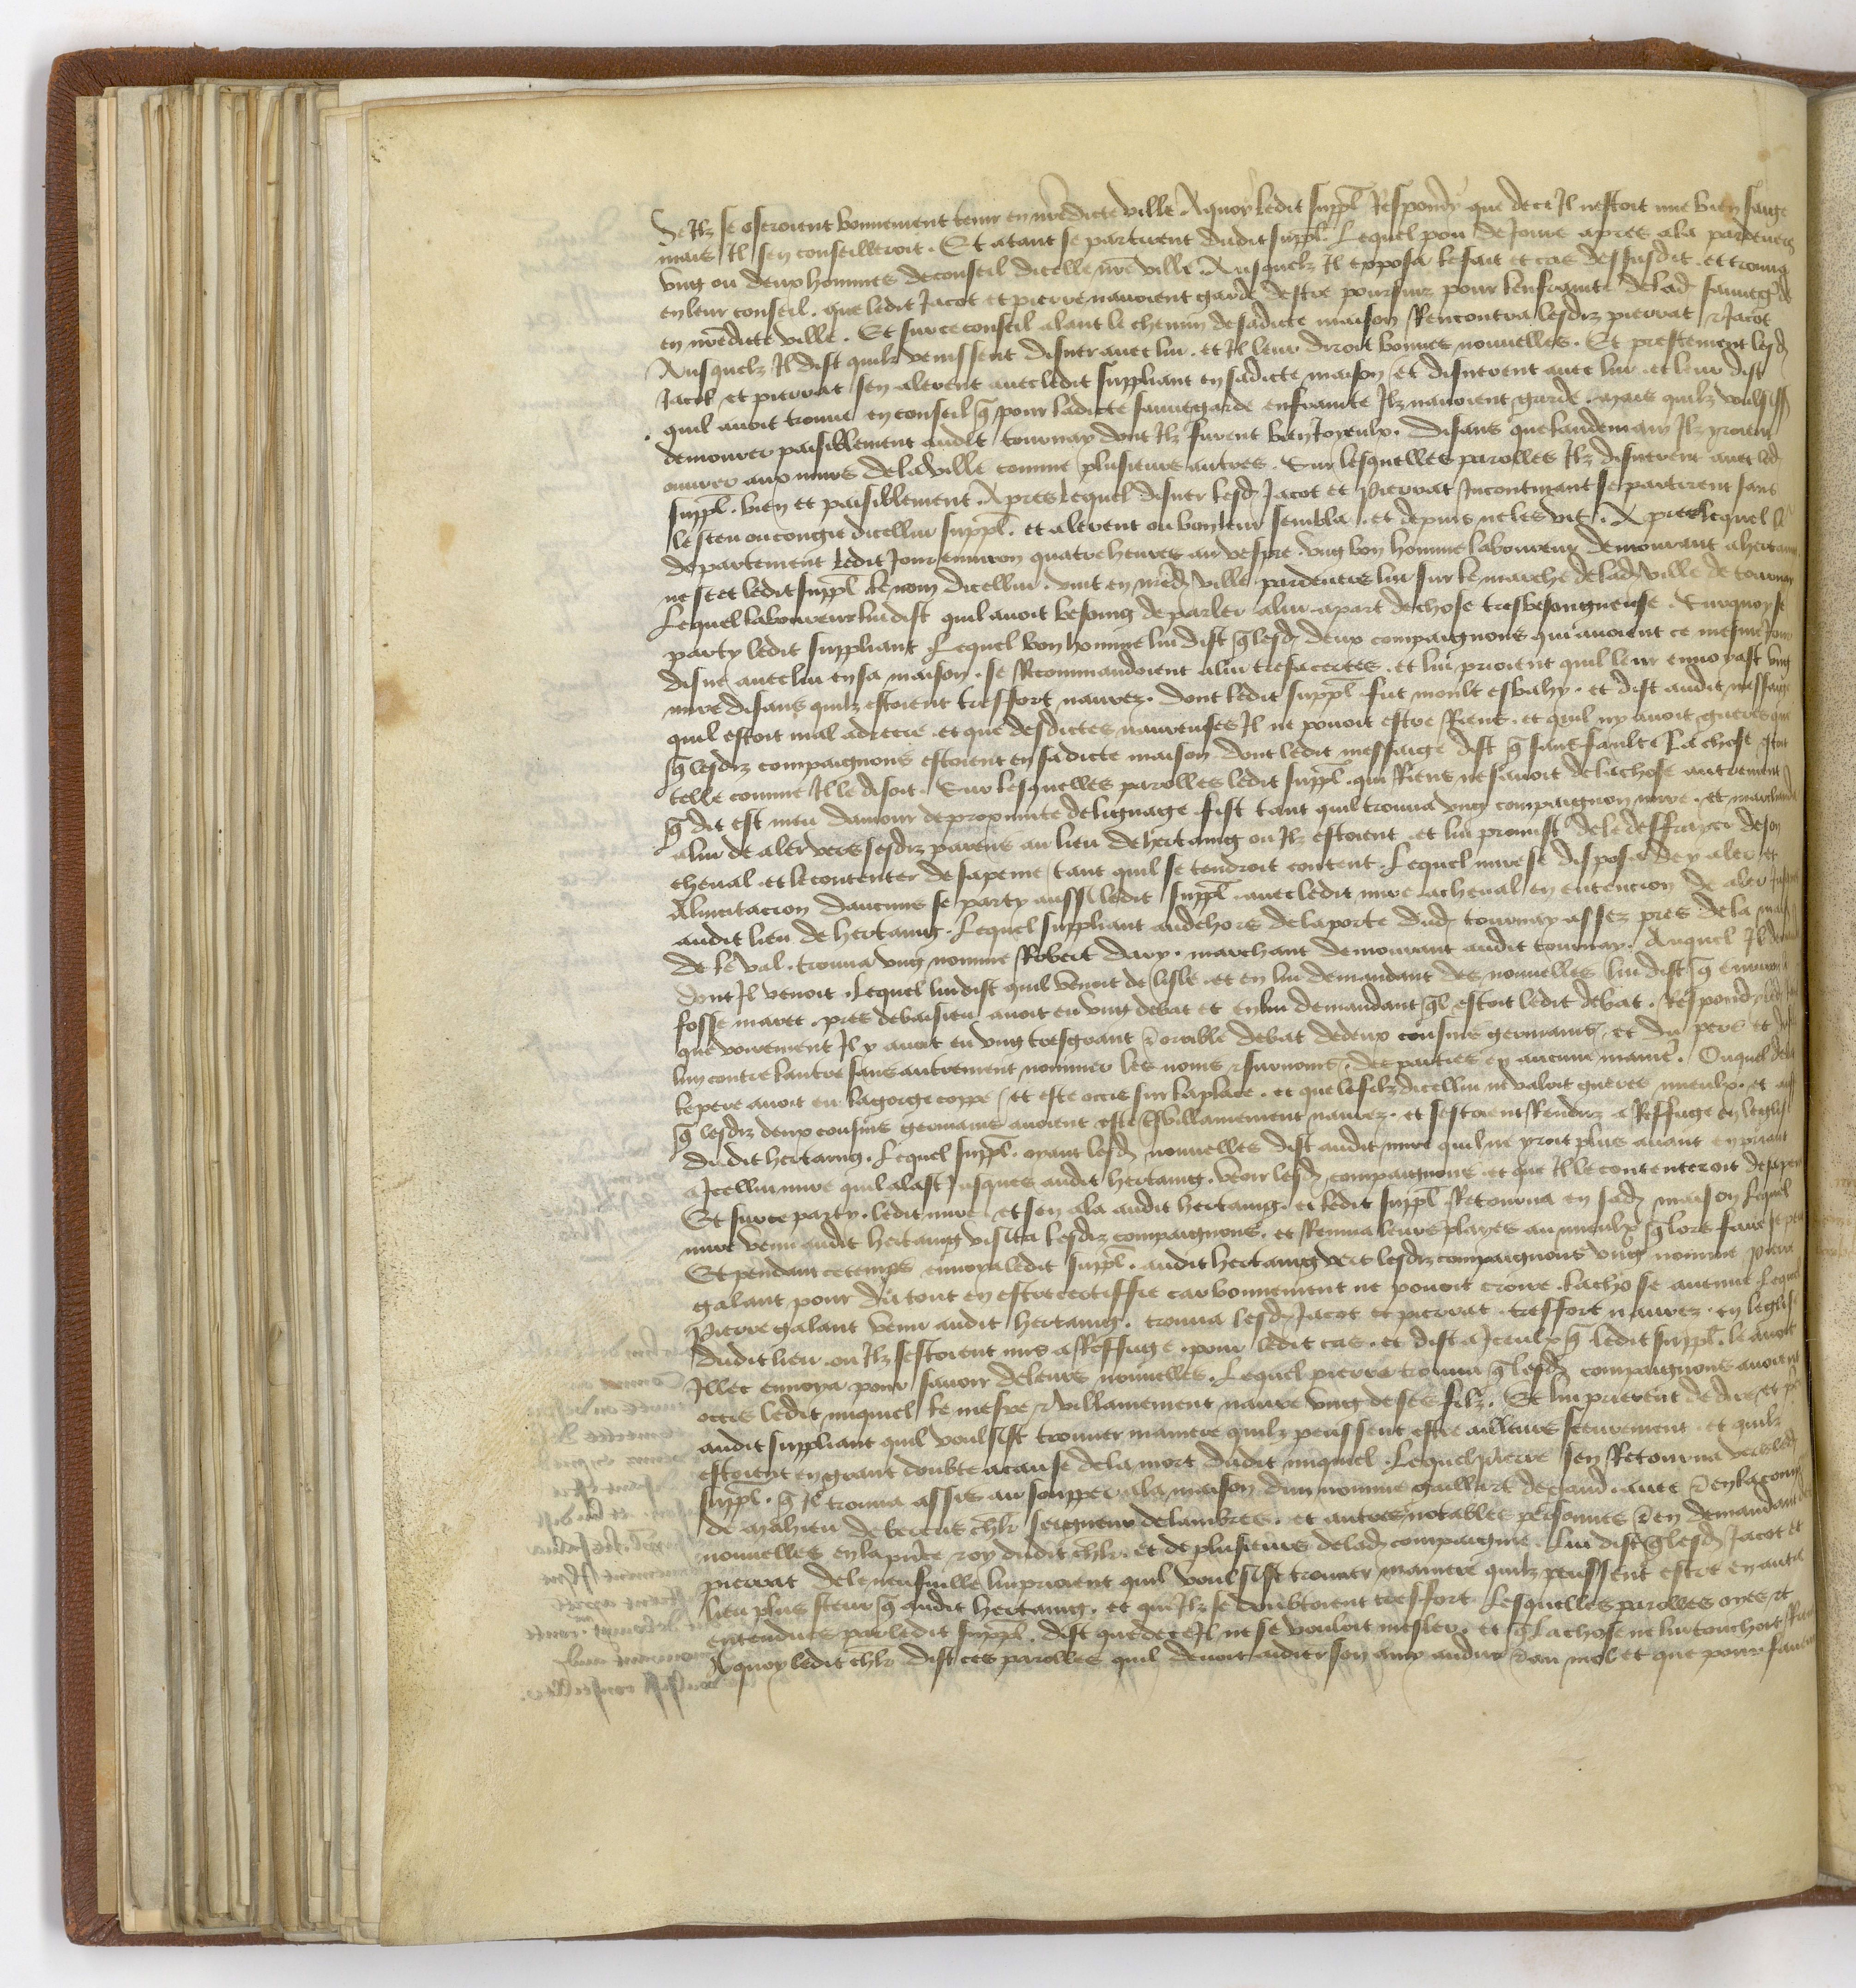 Se Ilz se oseroient bonnement tenir en nredicte ville. A quoy ledit suppl. Respondy que de ce Il nestoit mie bien saige
mais Il sen conseilleroit. Et atant se partirent dudit suppl. Lequel pou de jours apres ala pardevers
ung ou deux hommes de conseil dicelle nre ville. Ausquelz Il exposa le fait et cas dessusdit. et trouva
en leur conseil. que ledit Jacot et pierre navoient garde destre poursuiz pour lenfrainte de lad sauvegde
en nredicte ville. Et sur ce conseil alant le chemin de sadicte maison Rencontra lesdiz pierrat & Jacot
Ausquelz Il dist quilz venissent disner avec lui. et Il leur diroit bonnes nouvelles. Et prestement lesd
Jacot et pierrat sen alerent avec ledit suppliant en sadicte maison et disnerent avec lui. et leur dist
quil avoit trouve en conseil q pour ladicte sauvegarde enfrainte Ilz navoient garde. mais quilz voulsiss
demourer paisiblement audit tournay dont Ilz furent bien joyeulx. disans que landemain Ilz yroient
ouvrer aux murs de la ville comme plusieurs autres. Sur lesquelles parolles Ilz disnerent avec led
suppl. bien et paisiblement. Apres lequel disner lesd Jacot et Pierrat Incontinant se partirent sans
le sceu ou congie dicellui suppl. et alerent ou bon leur sembla. et depuis ne les vit. Apres lequel
departement ledit jour environ quatre heures au vespre. ung bon homme laboureur demourant a hertaing
ne scet ledit suppl. le nom dicellui. vint en nred ville pardevers lui sur le marche de lad ville de tournay
Lequel laboureur lui dist quil avoit besoing de parler a lui apart de chose tresbesongneuse. Surquoy se
party ledit suppliant. Lequel bon homme lui dist q lesd deux compaignons qui avoient ce mesme jour
disne avec lui en sa maison. se Recommandoient a lui tresacertes. et lui prioient quil leur envoyast ung
mire disans quilz estoient tresfort navrez. dont ledit suppl. fut moult esbahy. et dist audit messaige
quil estoit mal adrecie. et que desdictes navreuses Il ne povoit estre Riens. et quil ny avoit gueres que
q lesdiz compaignons estoient en sadicte maison. dont ledit messaige dist q sans faulte la chose estoit
telle comme Il le disoit. Sur lesquelles parolles ledit suppl. qui Riens ne savoit de la chose autrement
q dit est meu damour de proximite de lignage. fist tant quil trouva ung compaignon mire. et marchanda
a lui de aler vers sesdiz parens au lieu de hertaing ou Ilz estoient. et lui promist de le deffrayer de son
cheval. et le contenter de sa peine tant quil se tendroit content. Lequel mire se disposa de y aler et
A lincitacion daucuns se party aussi ledit suppl. avec ledit mire a cheval en entencion de aler jusques
audit lieu de hertaing. Lequel suppliant au dehors de la porte dud tournay assez pres de la
de le val. trouva ung nomme Robert davy. marchant demourant audit tournay. Auquel Il demanda
dont Il venoit. Lequel lui dist quil venoit de lisle. et en lui demandant des nouvelles lui dist q environ
fosse maret. pres de baisieu avoit eu ung debat et en lui demandant q estoit ledit debat. Respondy
que voirement Il y avoit eu ung tresgrant & orrible debat de deux cousins germains. et du pere et
lun contre lautre sans autrement nommer les noms & surnoms. des parties en aucune maniere. Ouquel debat
le pere avoit eu la gorge coppee et este occis sur la place. et que le filz dicellui ne valoit gueres mieulx. et
q lesdiz deux cousins germains avoient este tresvillainement navrez. et sestoient Renduz a Reffuge en leglise
dudit hertaing. Lequel suppl. oyant lesd nouvelles dist audit mire quil ne yroit plus avant en priant
a Icellui mire quil alast jusques audit hertaing. veoir lesd compaignons. et que Il le contenteroit de sa peine
Et sur ce party. ledit mire. et sen ala audit hertaing. et ledit suppl. Retourna en sad maison Lequel
mire venu audit hertaing visita lesdiz compaignons. et Remua leurs playes au mieulx q lors faire se peu
Et pendant ce temps envoya ledit suppl. audit hertaing vers lesdiz compaignons ung nomme Pierre
galant pour du tout en estre certiffie car bonnement ne povoit croire. la chose avenue. Lequel
Pierre galant venu audit hertaing. trouva lesd Jacot et pierrat. tresfort navrez. en leglise
dudit lieu. ou Ilz sestoient mis a Reffuge. pour ledit cas. et dist a Iceulx q ledit suppl. le avoit
Illec envoya pour savoir de leurs nouvelles. Lequel pierre trouva q lesd compaignons avoient
occis ledit miquiel le mesre & villainement navre ung de ses filz. Et lui prierent de dire et
audit suppliant quil voulsist trouver maniere quilz peussent estre ailleurs seeurement. et quilz
estoient en grant doubte a cause de la mort dudit miquiel. Lequel pierre sen Retourna vers led
suppl. q Il trouva assis au soupper a la maison dun nomme gaillart de gand. avec & en la comp
de mahieu de berens chlr seigneur de lambres. et autres notables personnes & en demandant des
nouvelles en la pnce roy dudit chlr. et de plusieurs de lad compaignie. Lui dist q lesd Jacot et
pierrat de leneufville lui prioient quil voulsist trouver maniere quilz peussent estre en autre
lieu plus seeur q audit hertaing. et que Ilz se doubtoient tresfort. Lesquelles parolles oyes et
entendues par ledit suppl. dist que de ce Il ne se vouloit mesler. et q la chose ne lui touchoit Riens
A quoy ledit chlr dist ces parolles quil devoit aidier son amy au dur & au mol et que pour